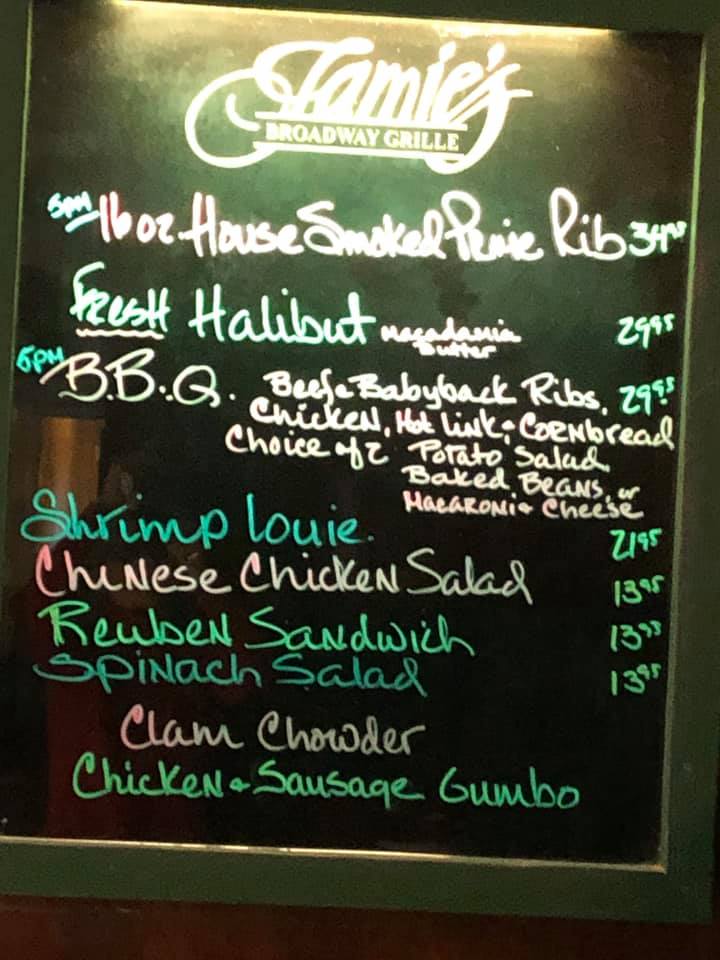 Jamie's
BROADWAY GRILLE
5PM 16 oz. House Smoked Prime Rib 34.95
Fresh Halibut Macadamia Butter 29.95
5PM B.B.Q. Beef & Babyback Ribs, 29.95
Chicken, Hot Link & Cornbread
Choice of 2 Potato Salad,
Baked Beans, or
Macaroni & Cheese
Shrimp Louie. 21.95
Chinese Chicken Salad 13.95
Reuben Sandwich 13.95
Spinach Salad 13.95
Clam Chowder
Chicken & Sausage Gumbo